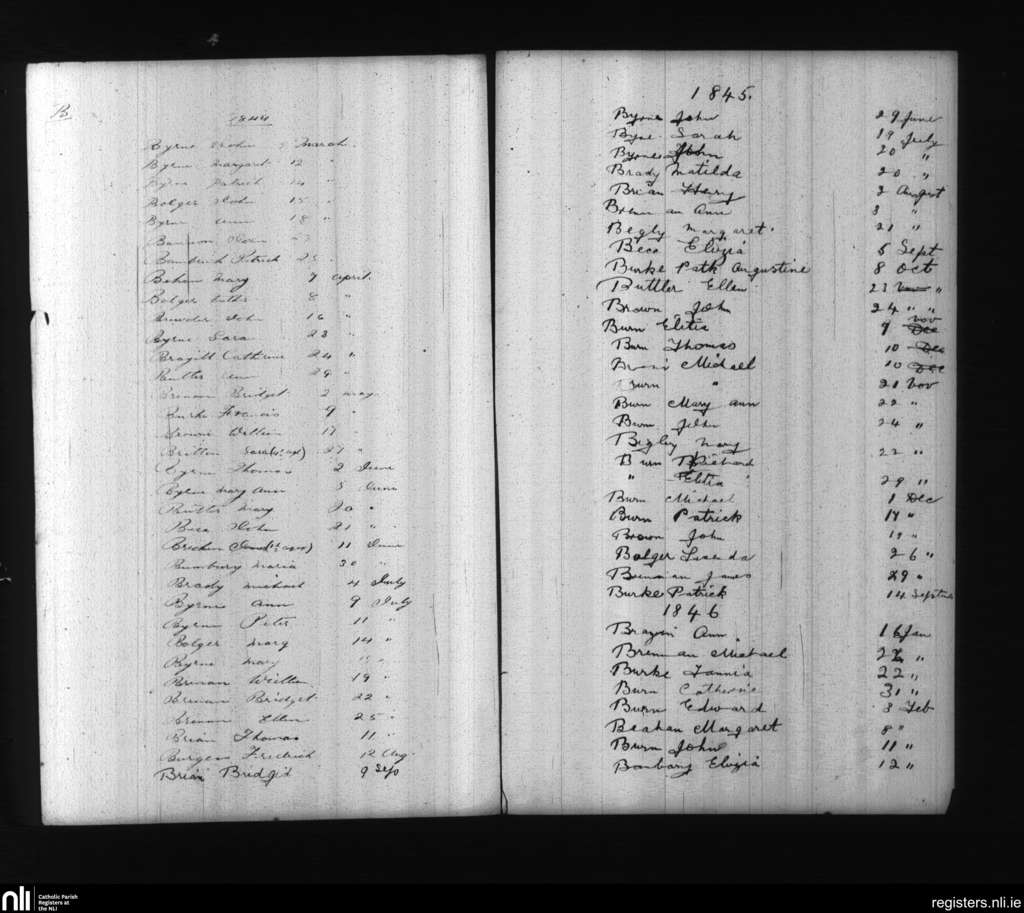 B
1844
Byrne John 5 March
Byrne Margaret 12 "
Byrne Patrick 14 "
Bolger John 15 "
Byrne Ann 18 "
Bannon John
Patrick 25 "
Behan Mary 7 April
Bolger 8 "
John 16 "
Byrne Sara 23 "
Catherine 24 "
Butler Ann 29 "
Brennan Bridget 2 May
Burke Francis 9 "
Browne William 17
Britten 27 "
Byrne Thomas 2 June
Byrne Mary Ann 5 June
Butler Mary 20 "
John 21 "
11 June
Bumbury Maria 30 "
Brady Michael 4 July
Byrne Ann 9 July
Byrne Peter 11 "
Bolger Mary 14 "
Byrne Mary
Brenan William 19 "
Brenan Bridget 22 "
Brenan Ellen 25 "
Brian Thomas 11 "
Burgess Fredrich 12 Aug.
Brian Bridgid 9 Sep
1845.
Byrne John 29 June
Byne Sarah 19 July
Byrne John 20 "
Brady Matilda 20 "
Brian Henry 2 August
Brenn an Ann 8 "
Begly Margaret. 21 "
Beca Elizia 5 Sept
Burke Patk Augustine 8 Oct
Buttler Ellen 23 Nov "
Brown John 24 " "
Burn Elitia 9 Dec Nov
Burn Thomas 10 Dec
Michael 10 Dec
Burn " 21 Nov
Burn Mary Ann 22 "
Burn John 24 "
Bigley Mary
Burn Richard 22 "
" Elitia 29 "
Burn Michael 1 Dec
Burn Patrick 14 "
Brown John 19 "
Bolger Lucinda 26 "
Brennan James 29 "
Burke Patrick 14 Septem
1846
Ann 16 Jan
Brennan Michael 22 "
Burke 22 "
Burn Catherine 31 "
Burn Edward 8 Feb
Beahan Margaret 8 "
Burn John 11 "
Elizia 12 "
nli
Catholic Parish
Registers at
the NLI
registers.nli.ie